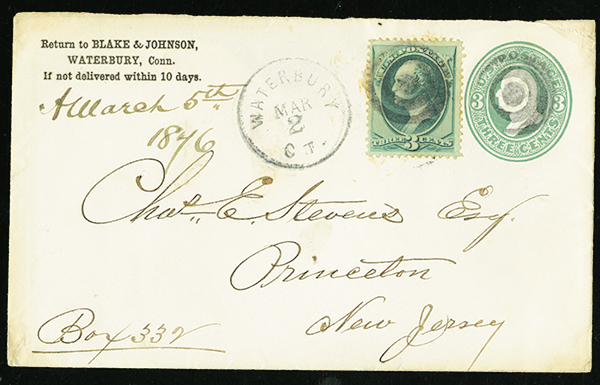 Return to BLAKE & JOHNSON,
WATERBURY, Conn.
If not delivered within 10 days.
A March 5th
1876
WATERBURY
MAR
2
CT.
U.S. POSTAGE
THREE 3 CENTS
U.S. POSTAGE
3 3
THREE CENTS
Chas. E. Stevens Esq.
Princeton
New Jersey
Box 332